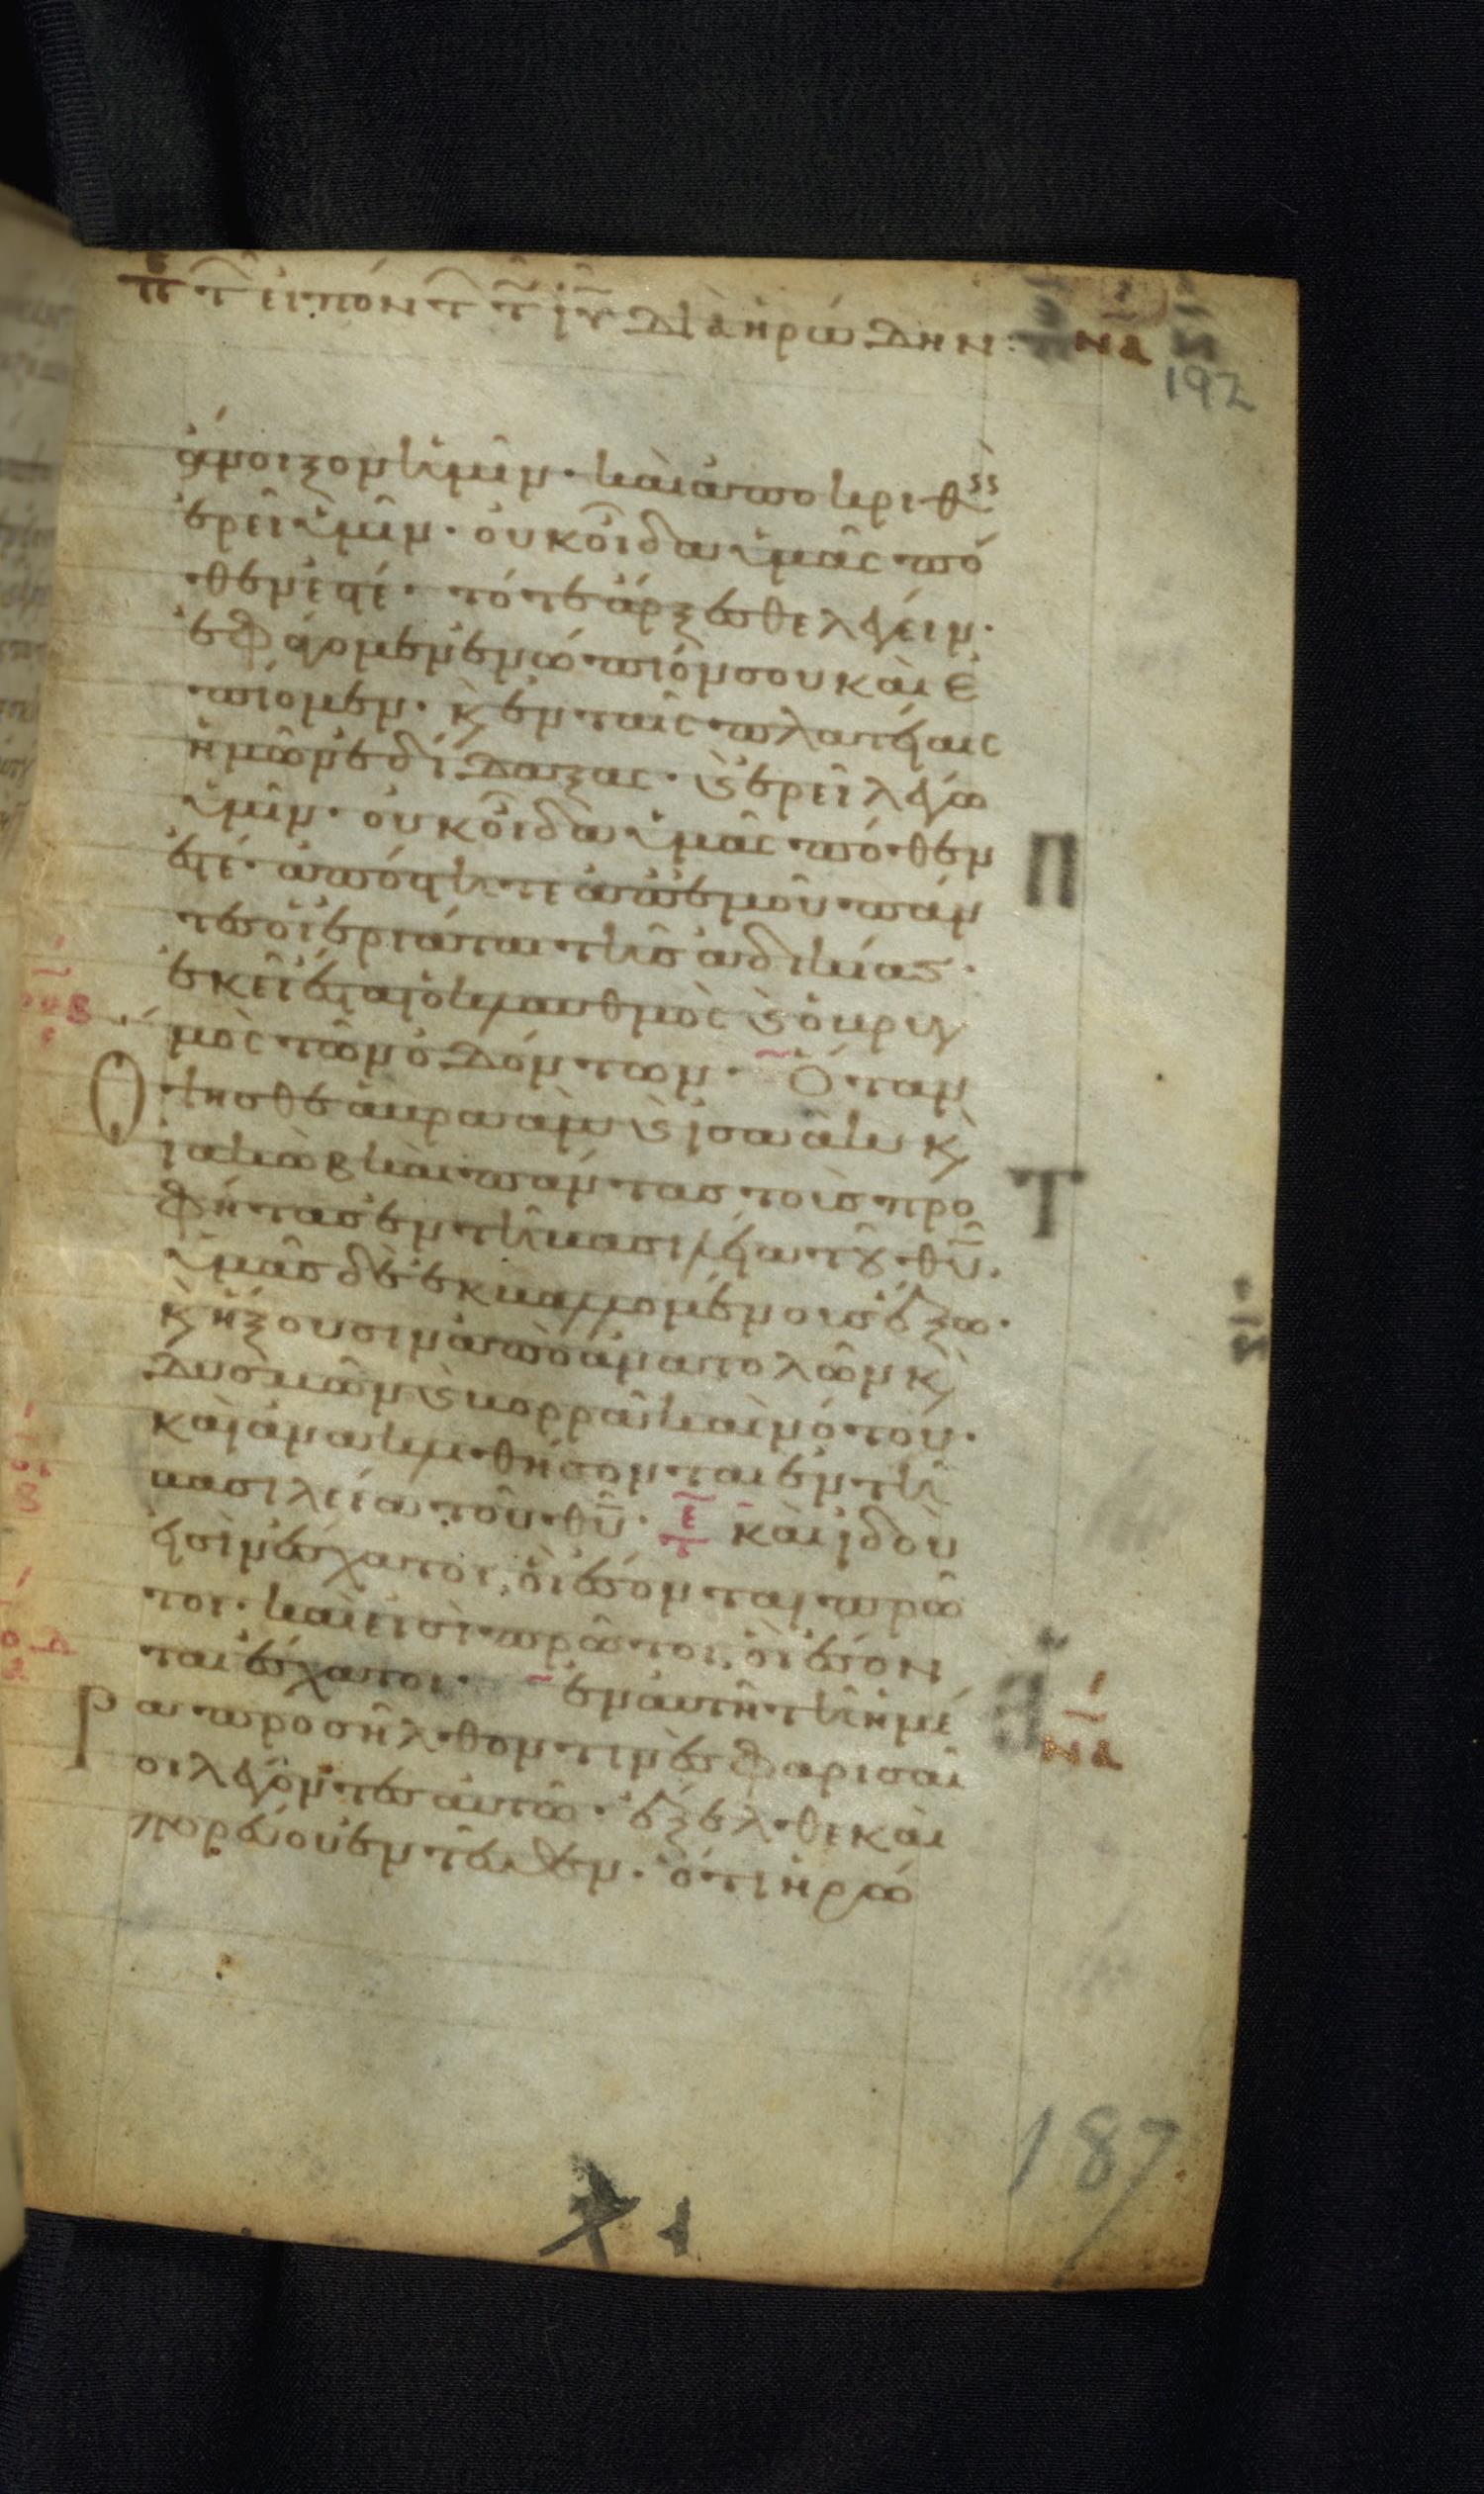 πε τ͂ ειπόντ τ͂ ιυ διὰ ηρώδην: να
192
ἄνοιξον ἡμῖν· καὶ ἀποκριθεὶς
ἐρεῖ ὑμῖν· οὐκ οἶδα ὑμᾶς πό
θεν ἐστέ· τότε ἄρξεσθε λέγειν·
ἐφάγομεν ἐνώπιόν σου καὶ ἐ
πίομεν· κ ἐν ταῖς πλατείαις
ἡμῶν ἐδίδαξας· κ ἐρεῖ λέγω
ὑμῖν· οὐκ οἶδα ὑμᾶς πόθεν
ἐστέ· ἀπόστητε ἀπ' ἐμοῦ πάν
τες οἱ ἐργάται τῆς ἀδικίας·
ἐκεῖ ἔσται ὁ κλαυθμὸς κ ὁ βρυγ
μὸς τῶν ὀδόντων· Ὅταν
ὄψησθε ἀβραὰμ κ ἰσαὰκ κ
ἰακὼβ καὶ πάντας τοὺς προ
φήτας ἐν τῇ βασιλεία τοῦ θυ·
ὑμᾶς δὲ ἐκβαλλομένους ἔξω·
κ ἥξουσιν ἀπὸ ἀνατολῶν κ
δυσμῶν κ βορρᾶ καὶ νότου·
καὶ ἀνακλιθήσονται ἐν τῇ
βασιλεία τοῦ θυ· καὶ ἰδοὺ
εἰσὶν ἔσχατοι, οἳ ἔσονται πρῶ
τοι· καὶ εἰσὶ πρῶτοι, οἳ ἔσον
ται ἔσχατοι· ἐν αὐτῇ τῇ ἡμέ
ρα προσῆλθόν τινες φαρισαῖ
οι λέγοντες αὐτῶ· ἔξελθε καὶ
πορεύου ἐντεῦθεν· ὅτι ἡρώ
να
187